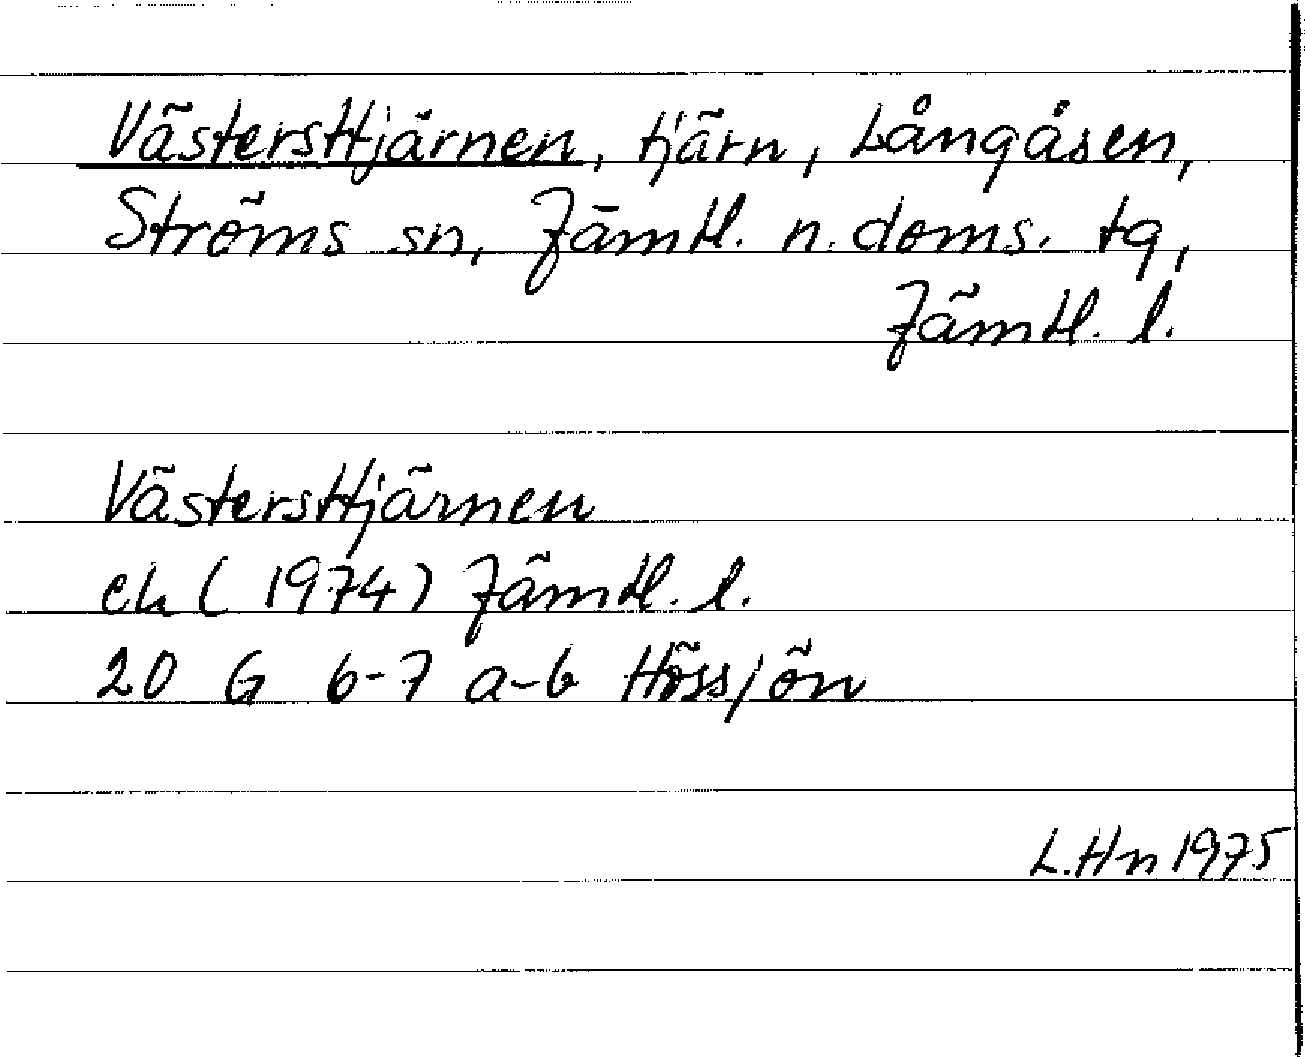 Västersttjärnen, tjärn, Långåsen,
Ströms sn, Jämtl. n. doms. tg,
Jämtl. l.
Västersttjärnen
ek (1974) Jämtl. l.
20 G 6-7 a-b Hössjön
L.Hn 1975